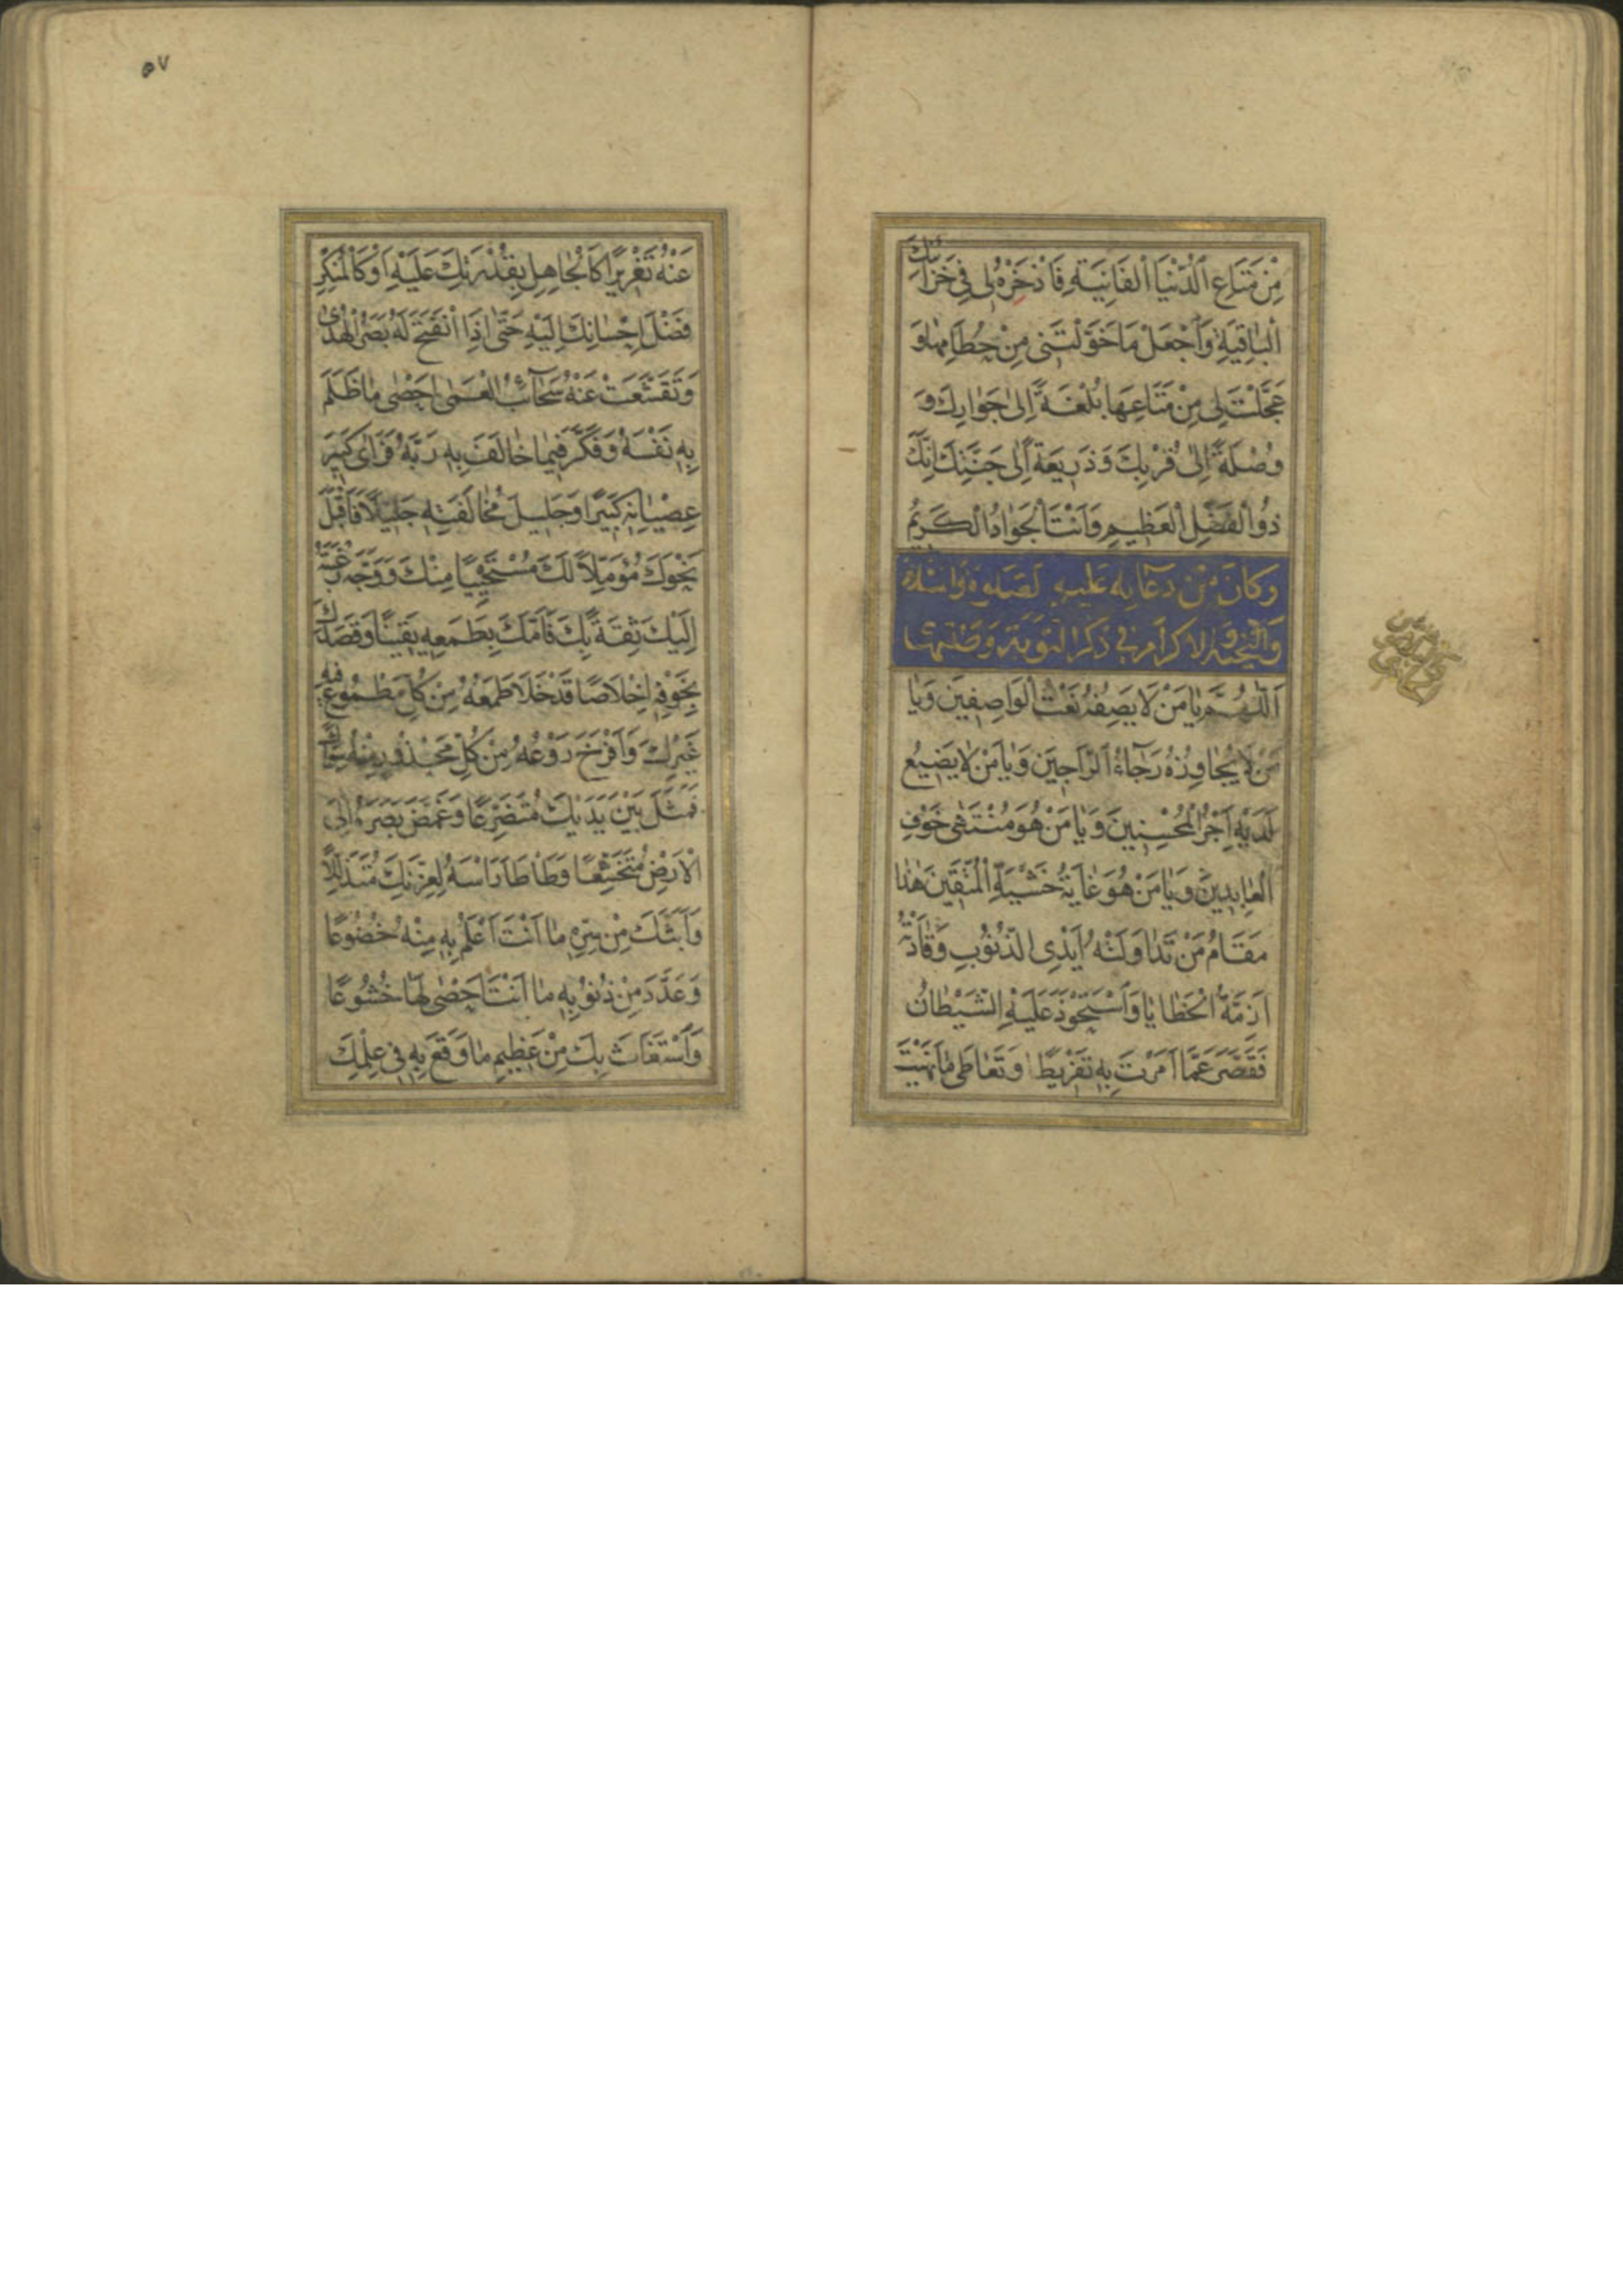 مِنْ مَتَاعِ الدُّنْيَا الْفَانِيَةِ فَاذْخَرْهُ لِي فِي خَزَائِنِكَ
الْبَاقِيَةِ وَاجْعَلْ مَا خَوَّلْتَنِي مِنْ حُطَامِهَا وَ
عَجَّلْتَ لِي مِنْ مَتَاعِهَا بُلْغَةً اِلٰى جَوَارِكَ وَ
وُصْلَةً اِلٰى قُرْبِكَ وَذَرِيعَةً اِلٰى جَنَّتِكَ اِنَّكَ
ذُو الْفَضْلِ الْعَظِيمِ وَاَنْتَ الْجَوَادُ الْكَرِيمُ
وَكَانَ مِنْ دُعَائِهِ عَلَيْهِ الصَّلوةُ وَالسَّلَامُ
وَالتَّحِيَّةُ وَالْاِكْرَامُ فِي ذِكْرِ التَّوْبَةِ وَطَلَبِهَا
اَللّٰهُمَّ يَا مَنْ لَا يَصِفُهُ نَعْتُ الْوَاصِفِينَ وَيَا
مَنْ لَا يُجَاوِزُهُ رَجَاءُ الرَّاجِينَ وَيَا مَنْ لَا يَضِيعُ
لَدَيْهِ اَجْرُ الْمُحْسِنِينَ وَيَا مَنْ هُوَ مُنْتَهٰى خَوْفِ
الْعَابِدِينَ وَيَا مَنْ هُوَ غَايَةُ خَشْيَةِ الْمُتَّقِينَ هٰذَا
مَقَامُ مَنْ تَدَاوَلَتْهُ اَيْدِي الذُّنُوبِ وَقَادَتْهُ
اَزِمَّةُ الْخَطَايَا وَاسْتَحْوَذَ عَلَيْهِ الشَّيْطَانُ
فَقَصَّرَ عَمَّا اَمَرْتَ بِهِ تَفْرِيطًا وَتَعَاطٰى مَا نَهَيْتَ
٥٧
عَنْهُ تَغْرِيرًا كَالْجَاهِلِ بِقُدْرَتِكَ عَلَيْهِ اَوْ كَالْمُنْكِرِ
فَضْلَ اِحْسَانِكَ اِلَيْهِ حَتّٰى اِذَا انْفَتَحَ لَهُ بَصَرُ الْهُدٰى
وَتَقَشَّعَتْ عَنْهُ سَحَائِبُ الْعَمٰى اَحْصٰى مَا ظَلَمَ
بِهِ نَفْسَهُ وَفَكَّرَ فِيمَا خَالَفَ بِهِ رَبَّهُ فَرَاٰى كَبِيرَ
عِصْيَانِهِ كَبِيرًا وَجَلِيلَ مُخَالَفَتِهِ جَلِيلًا فَاَقْبَلَ
نَحْوَكَ مُؤَمِّلًا لَكَ مُسْتَحْيِيًا مِنْكَ وَوَجَّهَ رَغْبَتَهُ
اِلَيْكَ ثِقَةً بِكَ فَاَمَّكَ بِطَمَعِهِ يَقِينًا وَقَصَدَكَ
بِخَوْفِهِ اِخْلَاصًا قَدْ خَلَا طَمَعُهُ مِنْ كُلِّ مَطْمُوعٍ فِيهِ
غَيْرِكَ وَاَفْرَخَ رَوْعُهُ مِنْ كُلِّ مَحْذُورٍ مِنْهُ سِوَاكَ
فَمَثَلَ بَيْنَ يَدَيْكَ مُتَضَرِّعًا وَغَمَّضَ بَصَرَهُ اِلَى
الْاَرْضِ مُتَخَشِّعًا وَطَاْطَاَ رَاْسَهُ لِعِزَّتِكَ مُتَذَلِّلًا
وَاَبَثَّكَ مِنْ سِرِّهِ مَا اَنْتَ اَعْلَمُ بِهِ مِنْهُ خُضُوعًا
وَعَدَّدَ مِنْ ذُنُوبِهِ مَا اَنْتَ اَحْصٰى لَهَا خُشُوعًا
وَاسْتَغَاثَ بِكَ مِنْ عَظِيمِ مَا وَقَعَ بِهِ فِي عِلْمِكَ